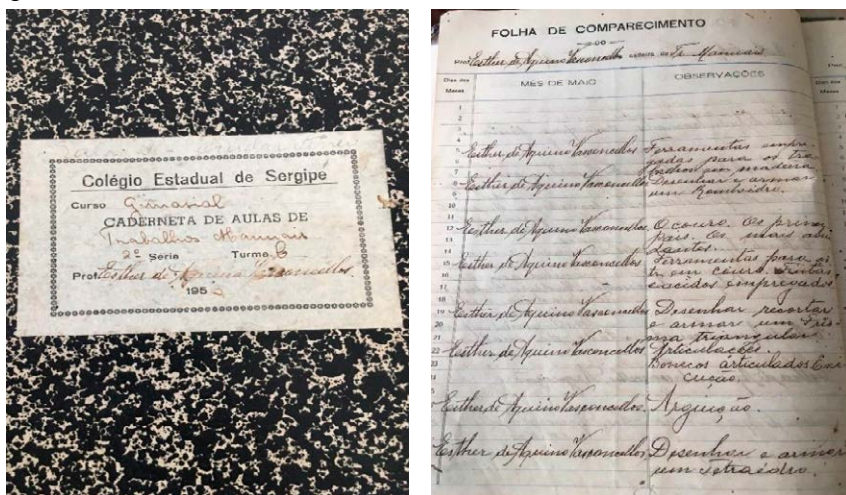 Colégio Estadual de Sergipe
Curso Ginasial
CADERNETA DE AULAS DE
Trabalhos Manuais
2ª Serie Turma B
Prof. Esther de Aquino Vasconcellos
195
FOLHA DE COMPARECIMENTO
DO
Prof. Esther de Aquino Vasconcellos cadeira de Tr. Manuais
Dias dos Mezes
MÊS DE MAIO
OBSERVAÇÕES
1
2
3
4
5 Esther de Aquino Vasconcellos Ferramentas empre
6 gadas para os tra
7 em madeira
8 Esther de Aquino Vasconcellos Desenhar e armar
9 um Romboidro.
10
11
12 Esther de Aquino Vasconcellos O couro. Os princi
13 pais. Os mais
14
15 Esther de Aquino Vasconcellos Ferramentas para o
16 tr. em couro. Tintas
17 e acidos empregados
18
19 Esther de Aquino Vasconcellos Desenhar recortar
20 e armar um Pris
21 ma triangular.
22 Esther de Aquino Vasconcellos Articulações.
23 Bonecos articulados Exe
cução.
Esther de Aquino Vasconcellos. Arguição.
Esther de Aquino Vasconcellos Desenhar e armar
um tetraédro.